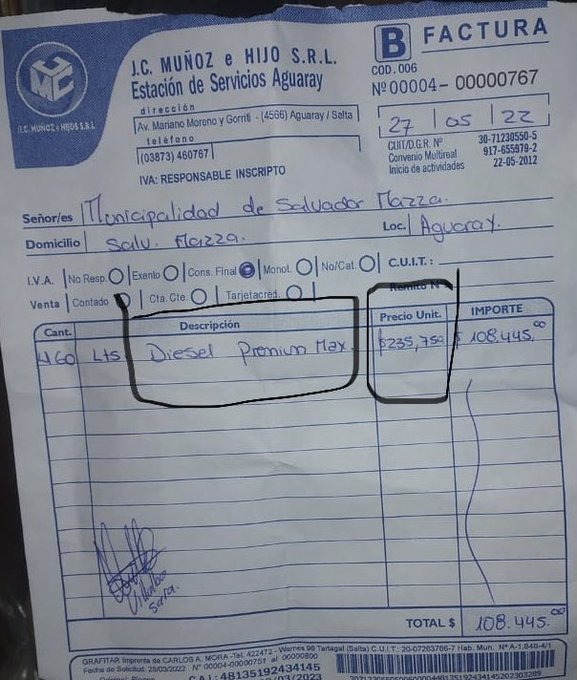 JMC
J.C. MUÑOZ E HIJOS S.R.L
J.C. MUÑOZ e HIJO S.R.L.
Estación de Servicios Aguaray
dirección
Av. Mariano Moreno y Gorriti - (4566) Aguaray / Salta
teléfono
(03873) 460767
IVA: RESPONSABLE INSCRIPTO
B FACTURA
COD. 006
Nº 00004 - 00000767
27 05 22
CUIT/D.G.R. Nº 30-71230550-5
Convenio Multireal 917-655979-2
Inicio de actividades 22-05-2012
Señor/es Municipalidad de Salvador Mazza.
Domicilio Salv. Mazza. Loc. Aguaray.
I.V.A. No Resp. Exento Cons. Final Monot. No/Cat. C.U.I.T.:
Venta Contado Cta. Cte. Tarjetacred. Remito Nº
Cant. Descripción Precio Unit. IMPORTE
460 Lts Diesel Premium Max. $235,750 $ 108.445,00
Villalba
Sara.
TOTAL $ 108.445.00
GRAFITAR Imprenta de CARLOS A. MORA -Tel. 422472 - Warnes 98 Tartagal (Salta) C.U.I.T.: 20-07263766-7 Hab. Mun. Nº A-1.840-4/1
Fecha de Solicitud: 28/03/2022 Nº 00004-00000751 al 00000800
C.A.I.: 48135192434145